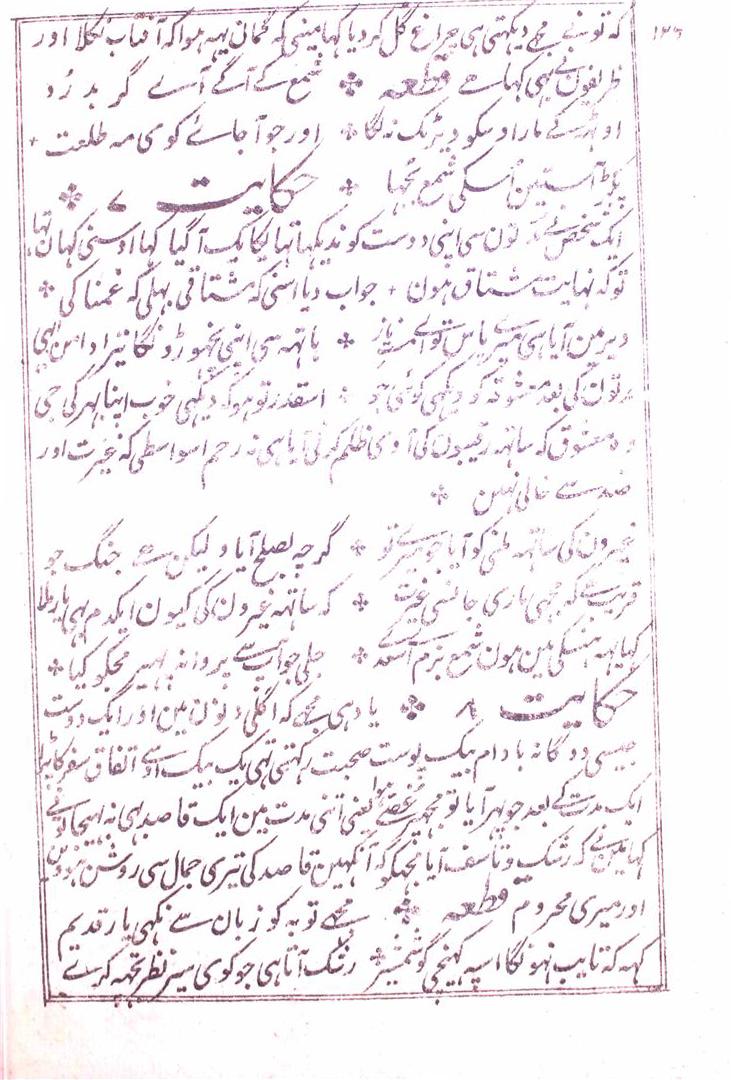 ۱۲۶
که تونے مجھے دیکہتی ہی چراغ گل کر دیا کہا مینی که گمان یہہ ہوا که آفتاب نکلا اور
ظریفون نے بہی کہا ہے قطعه شمع کے آگے آے گر بد رُو
اوٹہکے مار اوسکو دیڑنک نه لگا اور جو آ جاے کوی مه طلعت
پکڑ آستین اُسکی شمع بُجہا حکایت ۷
ایک شخص نے تون سی اپنی دوست کو ندیکہا تہا یکایک آ گیا کہا اوسنی کہان تہا
تو که نہایت مشتاق ہون جواب دیا اسنی که مشتاقی بہلی که غمناکی
دیر مین آیا ہی میرے پاس تو اے مست ناز ہاتہہ سی اپنی نچہوڑونگا تیرا دامن ابہی
تون کی بعد معشوقه کو دیکہی کوئی جو اسقدر تو ہو که دیکہی خوب اپنا بہر کی جی
وہ معشوق که ساتہه رقیبون کی آوی ظلم کرنی آیا ہی نه رحم اسواسطی که غیرت اور
ضد سے خالی نہین
غیرون کی ساتہه ملنی کو آیا جو میرے تو گرچه بصلح آیا ولیکن ہے جنگ جو
قریب ہے که مجہی ماری جانسی غیرت که ساتہه غیرون کی کیون ایکدم ہی یار ملا
کہا یہه ہنسکی مین ہون شمع بزم اے سعدی جلی جو آپ سے پروانه پہیر مجکو کیا
حکایت ۸ یاد ہی مجہے که اگلی دنون مین اور ایک دوست
جیسی دوگانه بادام بیک پوست صحبت رکہتی تہی یک بیک اوسے اتفاق سفر کا پڑا
ایک مدت کے بعد جو پہر آیا تو مجہپر غصے ہوا یعنی اتنی مدت مین ایک قاصد بہی نه بہیجا تونے
کہا مین نے که رشک و تاسف آیا مجہکو که آنکہین قاصد کی تیری جمال سی روشن ہووین
اور میری محروم قطعه مجہے توبه کو زبان سے نکہی یار قدیم
کہه که تایب نہونگا اسپه کہینچی گو شمشیر رشک آتا ہی جو کوی سیر نظر تجہه کرے